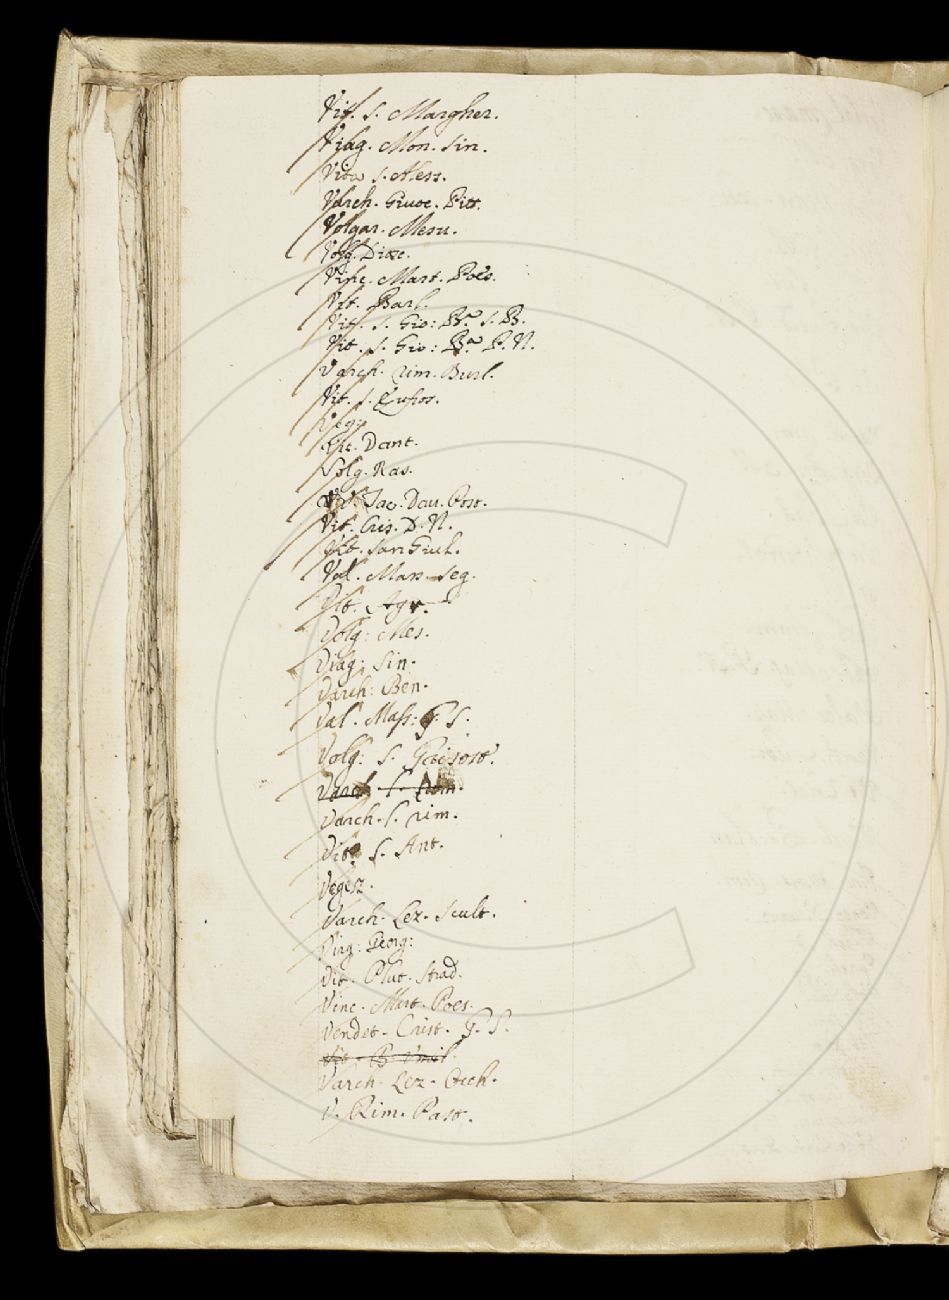 Vit. S. Margher.
Viag. Mon. Sin.
Vita S. Aless.
Varch. Giuoc. Pitt.
Volgar. Mesu.
Volg. Diosc.
Vinc. Mart. Poes.
Vit. Barl.
Vit. S. Gio: Ba. S. B.
Vit. S. Gio: Ba. P. N.
Varch. rim. Burl.
Vit. S. Eufros.
Veg.
Vit. Dant.
Volg. Ras.
Vit. Cris. D. N.
Vit. San Giul.
Val. Mass. Seg.
Vit. Agr.
Volg: Mes.
Viag: Sin.
Varch: Ben.
Val. Mass: G. S.
Volg: S. Grisost.
Varch. S. rim.
Varch. S. rim.
Vit. S. Ant.
Vegez.
Varch. Lez. Scult.
Viag: Georg:
Vit. Plut. Strad.
Vinc. Mart. Poes.
Vendet. Crist. G. S.
Vit. B. Umil.
Varch. Lez. Occh.
V. Rim. Past.